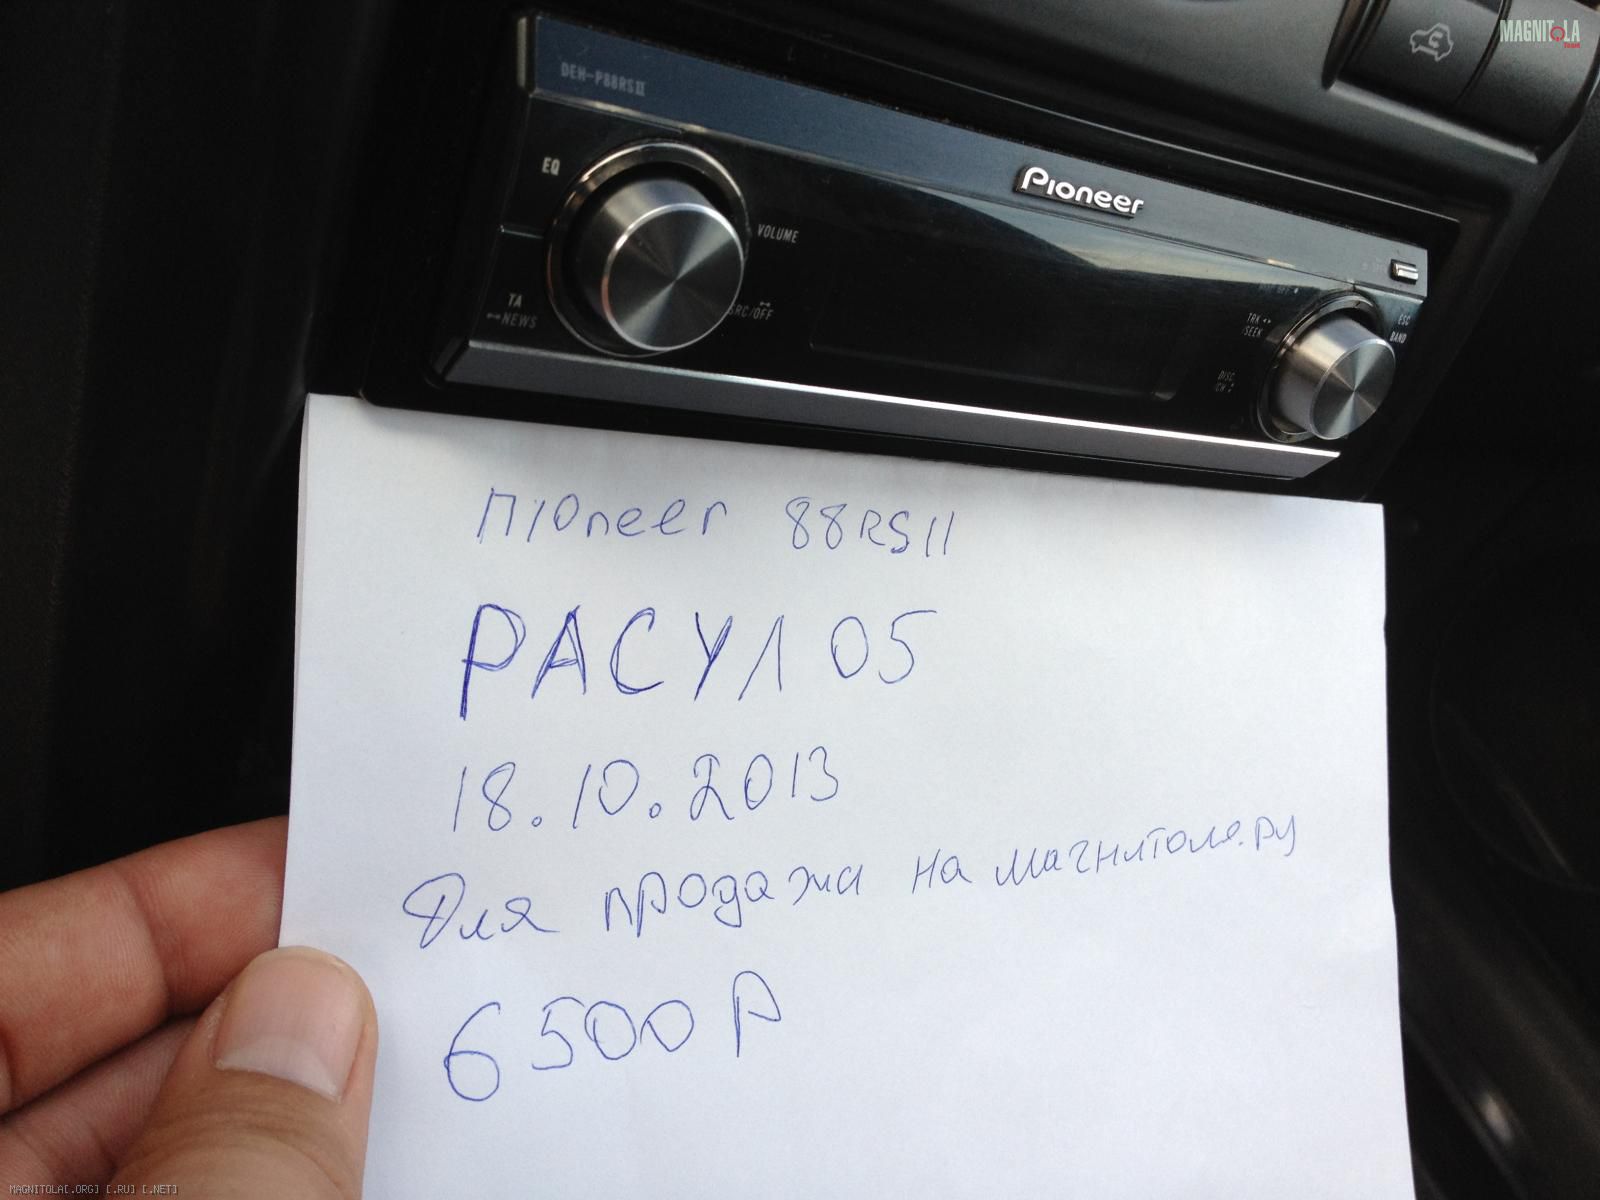 MAGNITOLA
Team
DEH-P88RSII
Pioneer
EQ
VOLUME
TA
NEWS
SRC/OFF
TRK
/SEEK
ESC
BAND
DISC
/CH
Пioneer 88RSII
РАСУЛ 05
18.10.2013
Для продажи на магнитоле.ру
6500 Р
MAGNITOLA[.ORG] [.RU] [.NET]